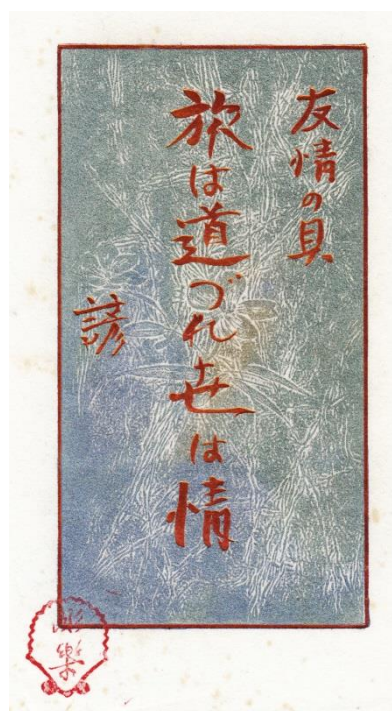 友情の貝
旅は道づれ世は情
諺
彫樂